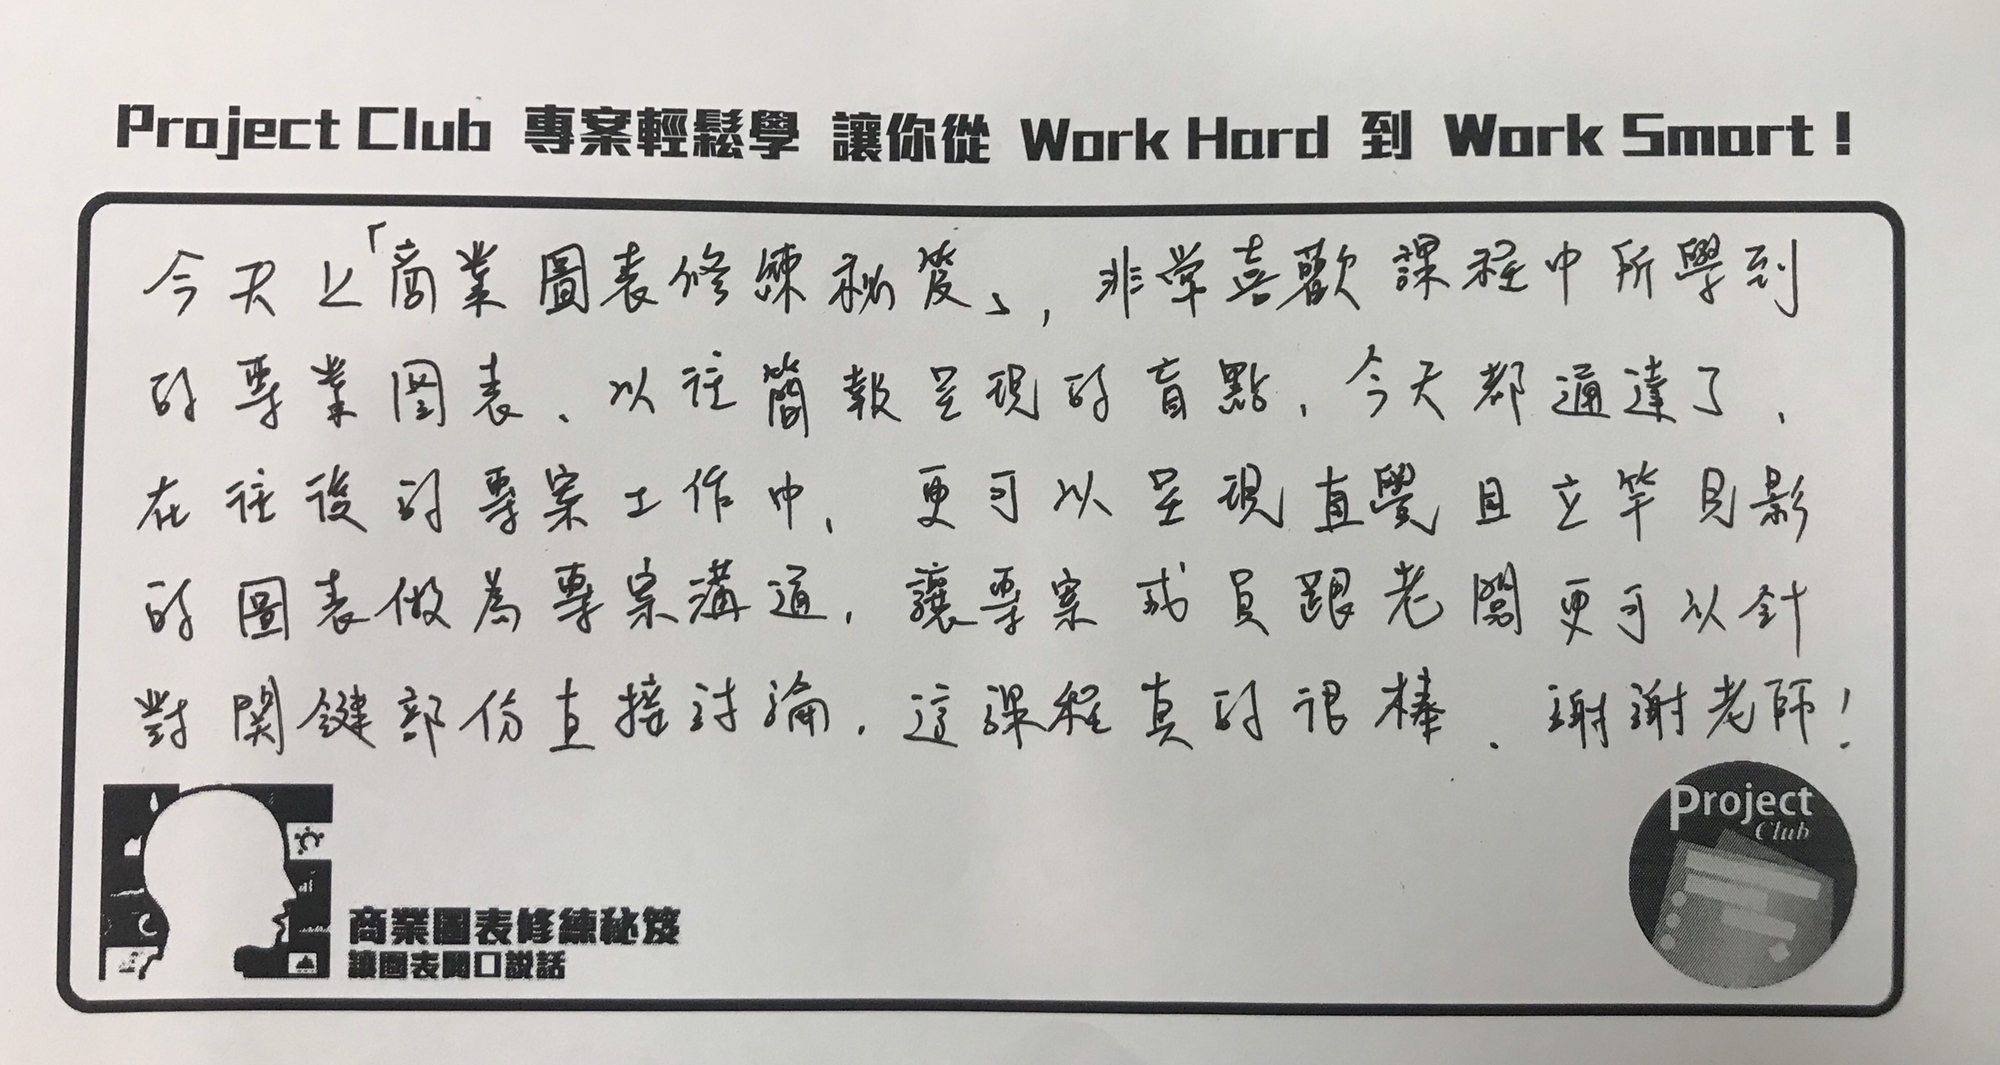 Project Club 專案輕鬆學 讓你從 Work Hard 到 Work Smart!
今天上「商業圖表修煉秘笈」,非常喜歡課程中所學到
的專業圖表、以往簡報呈現的盲點,今天都通達了,
在往後的專案工作中,更可以呈現直覺且立竿見影
的圖表做為專案溝通,讓專案成員跟老闆更可以針
對関鍵部份直接討論,這課程真的很棒、謝謝老師!
Project
Club
商業圖表修練秘笈
讓圖表開口說話